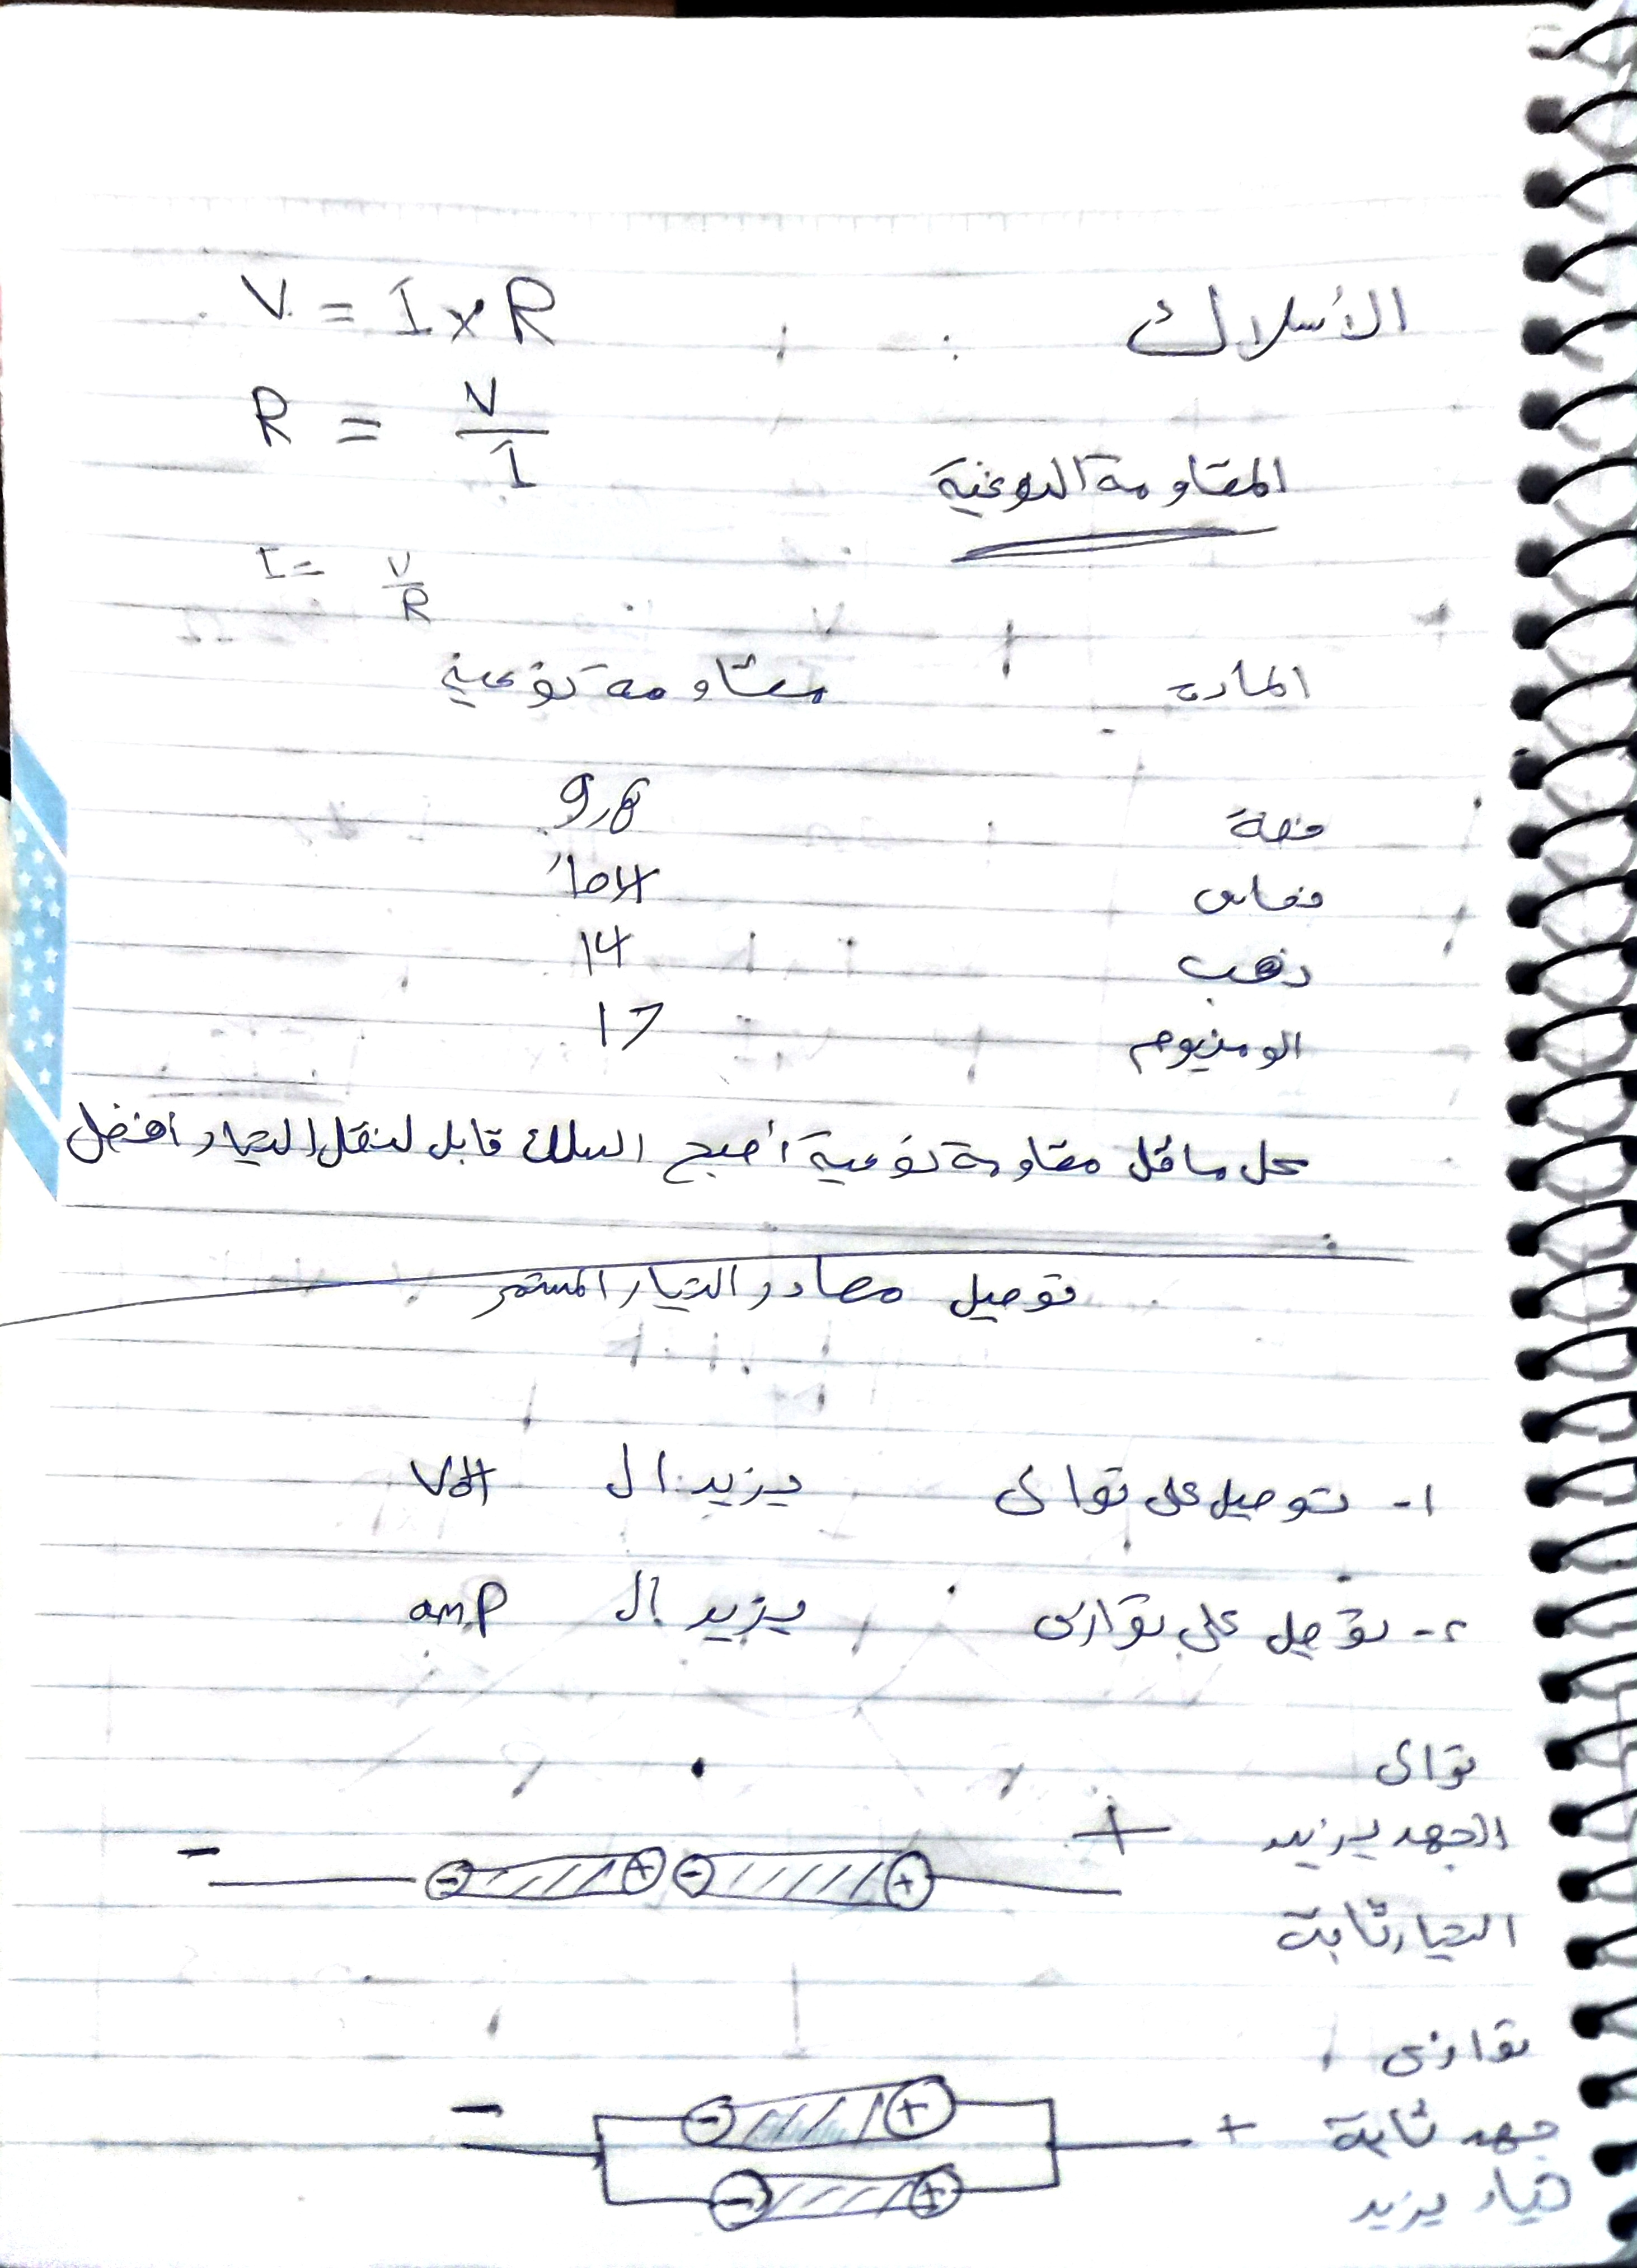 الأسلاك
V = I x R
R = V / I
المقاومة النوعية
I = V / R
المادة مقاومة نوعية
فضة 9,8
نحاس
ذهب 14
الومنيوم 17
كل ما قل مقاومة نوعية أصبح السلك قابل لنقل التيار أفضل
توصيل مصادر التيار المستمر
١- توصيل على توالى يزيد ال Volt
٢- توصل على توازى يزيد ال amp
توالى
الجهد يزيد + -
- + - +
التيار ثابة
توازى
- - + +
جهد ثابة
- +
تيار يزيد